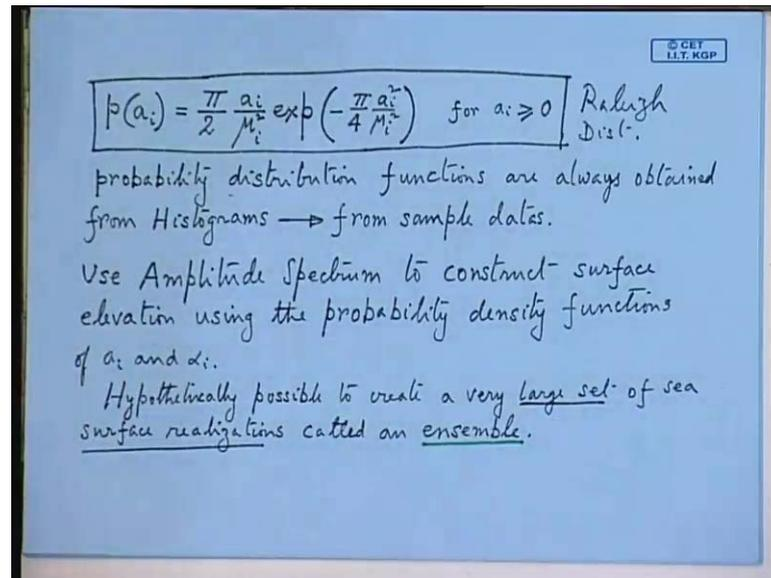 © CET
I.I.T. KGP
p(a_i) = π/2 a_i/μ_i² exp(-π/4 a_i²/μ_i²) for a_i ⩾ 0 Raleigh
Dist.
probability distribution functions are always obtained
from Histograms → from sample datas.
Use Amplitude Spectrum to construct surface
elevation using the probability density functions
of a_i and α_i.
Hypothetically possible to create a very large set of sea
surface realizations called an ensemble.